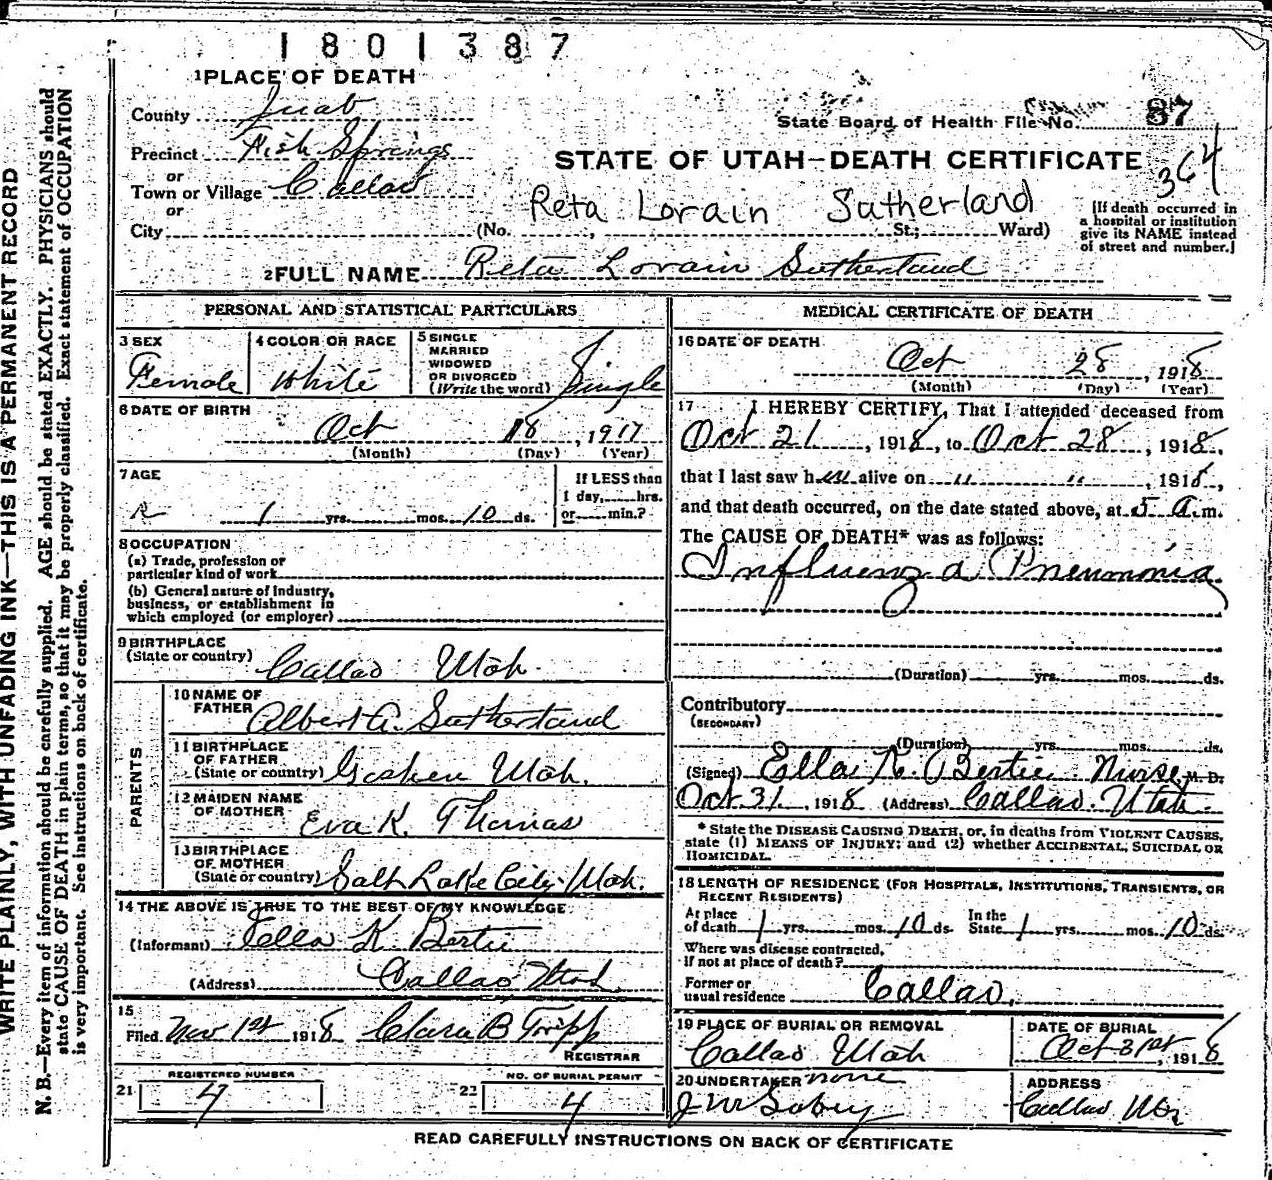 1801387
1 PLACE OF DEATH
County Juab
State Board of Health File No. 87
Precinct Fish Springs
364
STATE OF UTAH—DEATH CERTIFICATE
or
Town or Village Callao
or
Reta Lorain Sutherland
City (No. , St.; Ward)
[If death occurred in
a hospital or institution
give its NAME instead
of street and number.]
2 FULL NAME Reta Lorain Sutherland
PERSONAL AND STATISTICAL PARTICULARS
3 SEX
Female
4 COLOR OR RACE
White
5 SINGLE
MARRIED
WIDOWED
OR DIVORCED
(Write the word) Single
6 DATE OF BIRTH
Oct 18, 1917
(Month) (Day) (Year)
7 AGE
1 yrs. mos. 10 ds.
If LESS than
1 day, hrs.
or min.?
8 OCCUPATION
(a) Trade, profession or
particular kind of work
(b) General nature of industry,
business, or establishment in
which employed (or employer)
9 BIRTHPLACE
(State or country) Callao Utah.
PARENTS
10 NAME OF
FATHER Albert A. Sutherland
11 BIRTHPLACE
OF FATHER
(State or country) Goshen Utah.
12 MAIDEN NAME
OF MOTHER Eva K. Thomas
13 BIRTHPLACE
OF MOTHER
(State or country) Salt Lake City Utah.
14 THE ABOVE IS TRUE TO THE BEST OF MY KNOWLEDGE
(Informant) Ella K Bertie
(Address) Callao Utah
15
Filed Nov 1st 1918 Clara B Tripp
REGISTRAR
REGISTERED NUMBER
21 4
NO. OF BURIAL PERMIT
22 4
MEDICAL CERTIFICATE OF DEATH
16 DATE OF DEATH
Oct 28, 1918
(Month) (Day) (Year)
17 I HEREBY CERTIFY, That I attended deceased from
Oct 21, 1918, to Oct 28, 1918,
that I last saw her alive on " ", 1918,
and that death occurred, on the date stated above, at 5 A.m.
The CAUSE OF DEATH* was as follows:
Influenza Pneumonia
(Duration) yrs. mos. ds.
Contributory
(SECONDARY)
(Duration) yrs. mos. ds.
(Signed) Ella K. Bertie Nurse M. D.
Oct 31, 1918 (Address) Callao. Utah.
* State the DISEASE CAUSING DEATH, or, in deaths from VIOLENT CAUSES,
state (1) MEANS OF INJURY; and (2) whether ACCIDENTAL, SUICIDAL OR
HOMICIDAL.
18 LENGTH OF RESIDENCE (FOR HOSPITALS, INSTITUTIONS, TRANSIENTS, OR
RECENT RESIDENTS)
At place
of death 1 yrs. mos. 10 ds. In the
State 1 yrs. mos. 10 ds.
Where was disease contracted,
if not at place of death?
Former or
usual residence Callao.
19 PLACE OF BURIAL OR REMOVAL
Callao Utah
DATE OF BURIAL
Oct 31st, 1918
20 UNDERTAKER none
J W Sabey
ADDRESS
Callao
READ CAREFULLY INSTRUCTIONS ON BACK OF CERTIFICATE
WRITE PLAINLY, WITH UNFADING INK—THIS IS A PERMANENT RECORD
N. B.—Every item of information should be carefully supplied. AGE should be stated EXACTLY. PHYSICIANS should
state CAUSE OF DEATH in plain terms, so that it may be properly classified. Exact statement of OCCUPATION
is very important. See instructions on back of certificate.